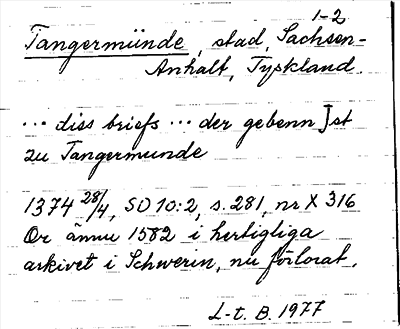 1-2
Tangermünde, stad, Sachsen-
Anhalt, Tyskland.
... diss briefs ... der gebenn]st
zu Tangermunde
1374 28/4, SD 10:2, s. 281, nr X 316
Or ännu 1582 i hertigliga
arkivet i Schwerin, nu förlorat.
L-t. B. 1977